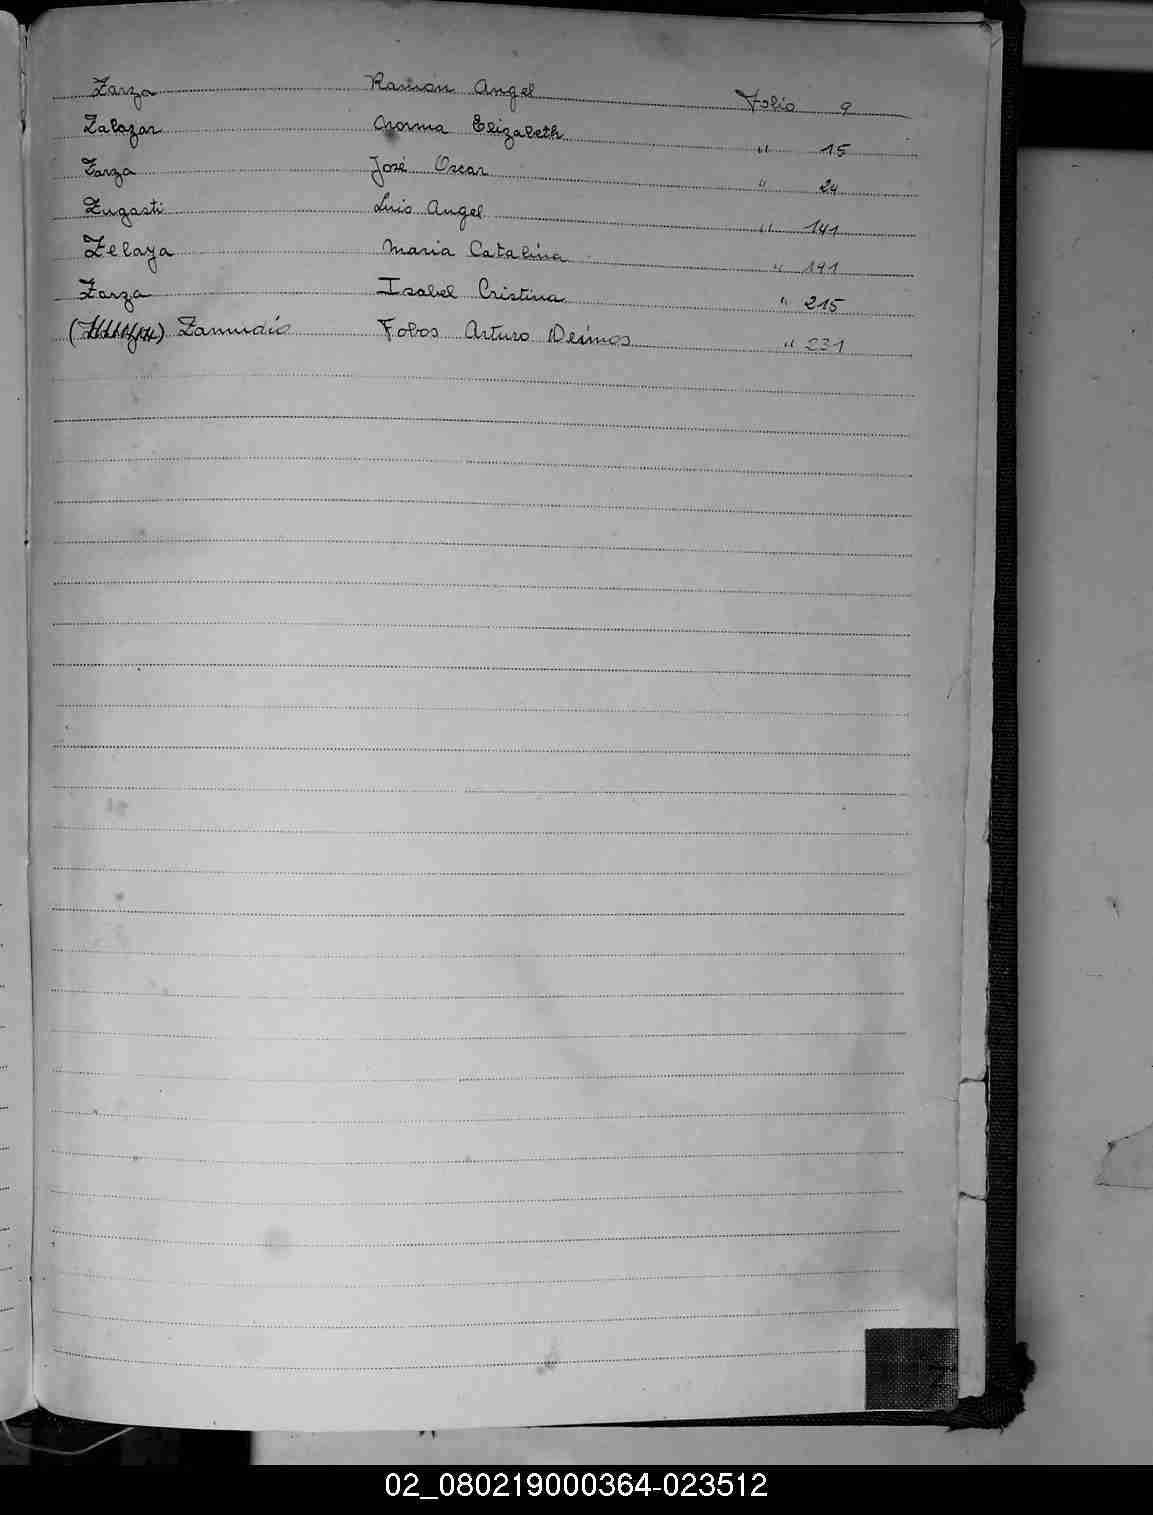 Zarza Ramón Angel Folio 9
Zalazar Norma Elizabeth " 15
Zarza José Oscar " 24
Zugasti Luis Angel " 141
Zelaya Maria Catalina " 191
Zarza Isabel Cristina " 215
Zamudio Fobos Arturo Deimos " 231
Z
02_080219000364-023512